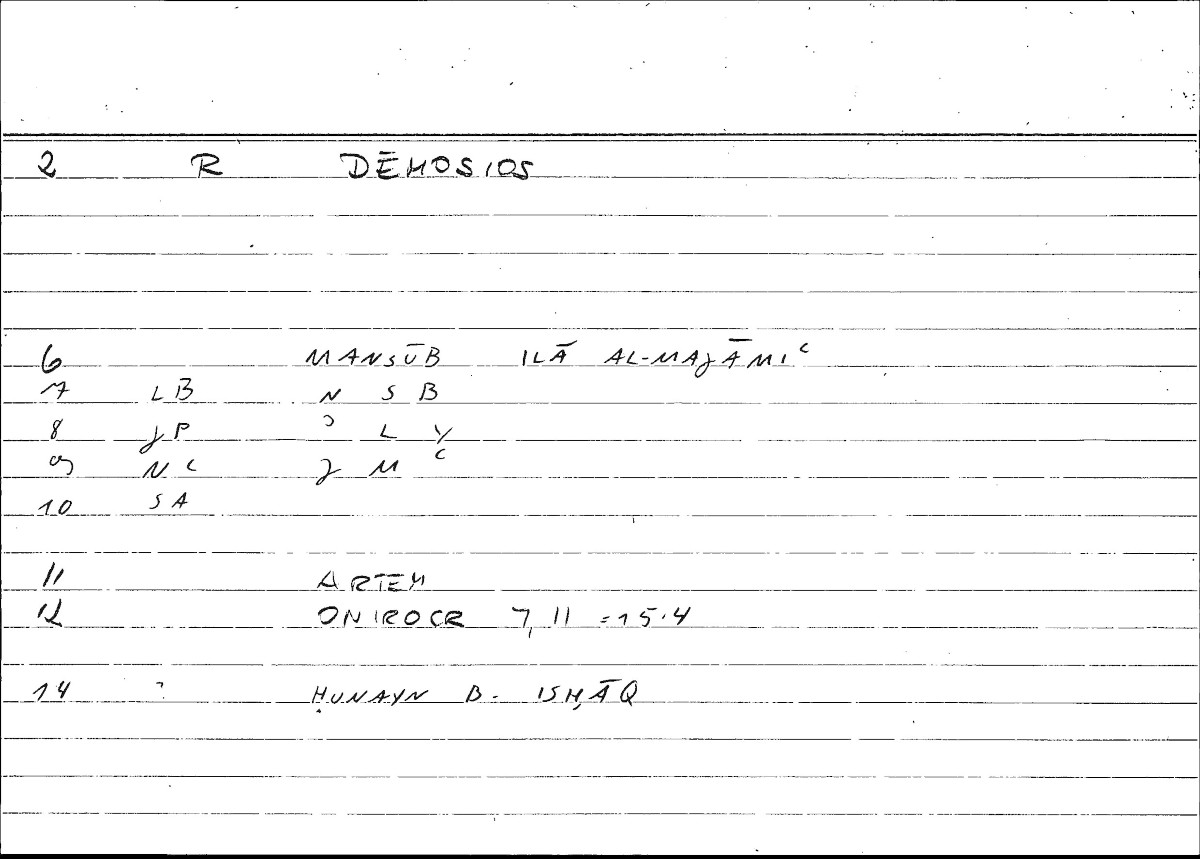 2 R DĒMOSIOS
6 MANSŪB ILĀ AL-MAJĀMIʿ
7 LB N S B
8 JP ʾ L Y
9 NC J M ʿ
10 SA
11 ARTEM
12 ONIROCR 7,11 = 15.4
14 ? ḤUNAYN B. ISḤĀQ